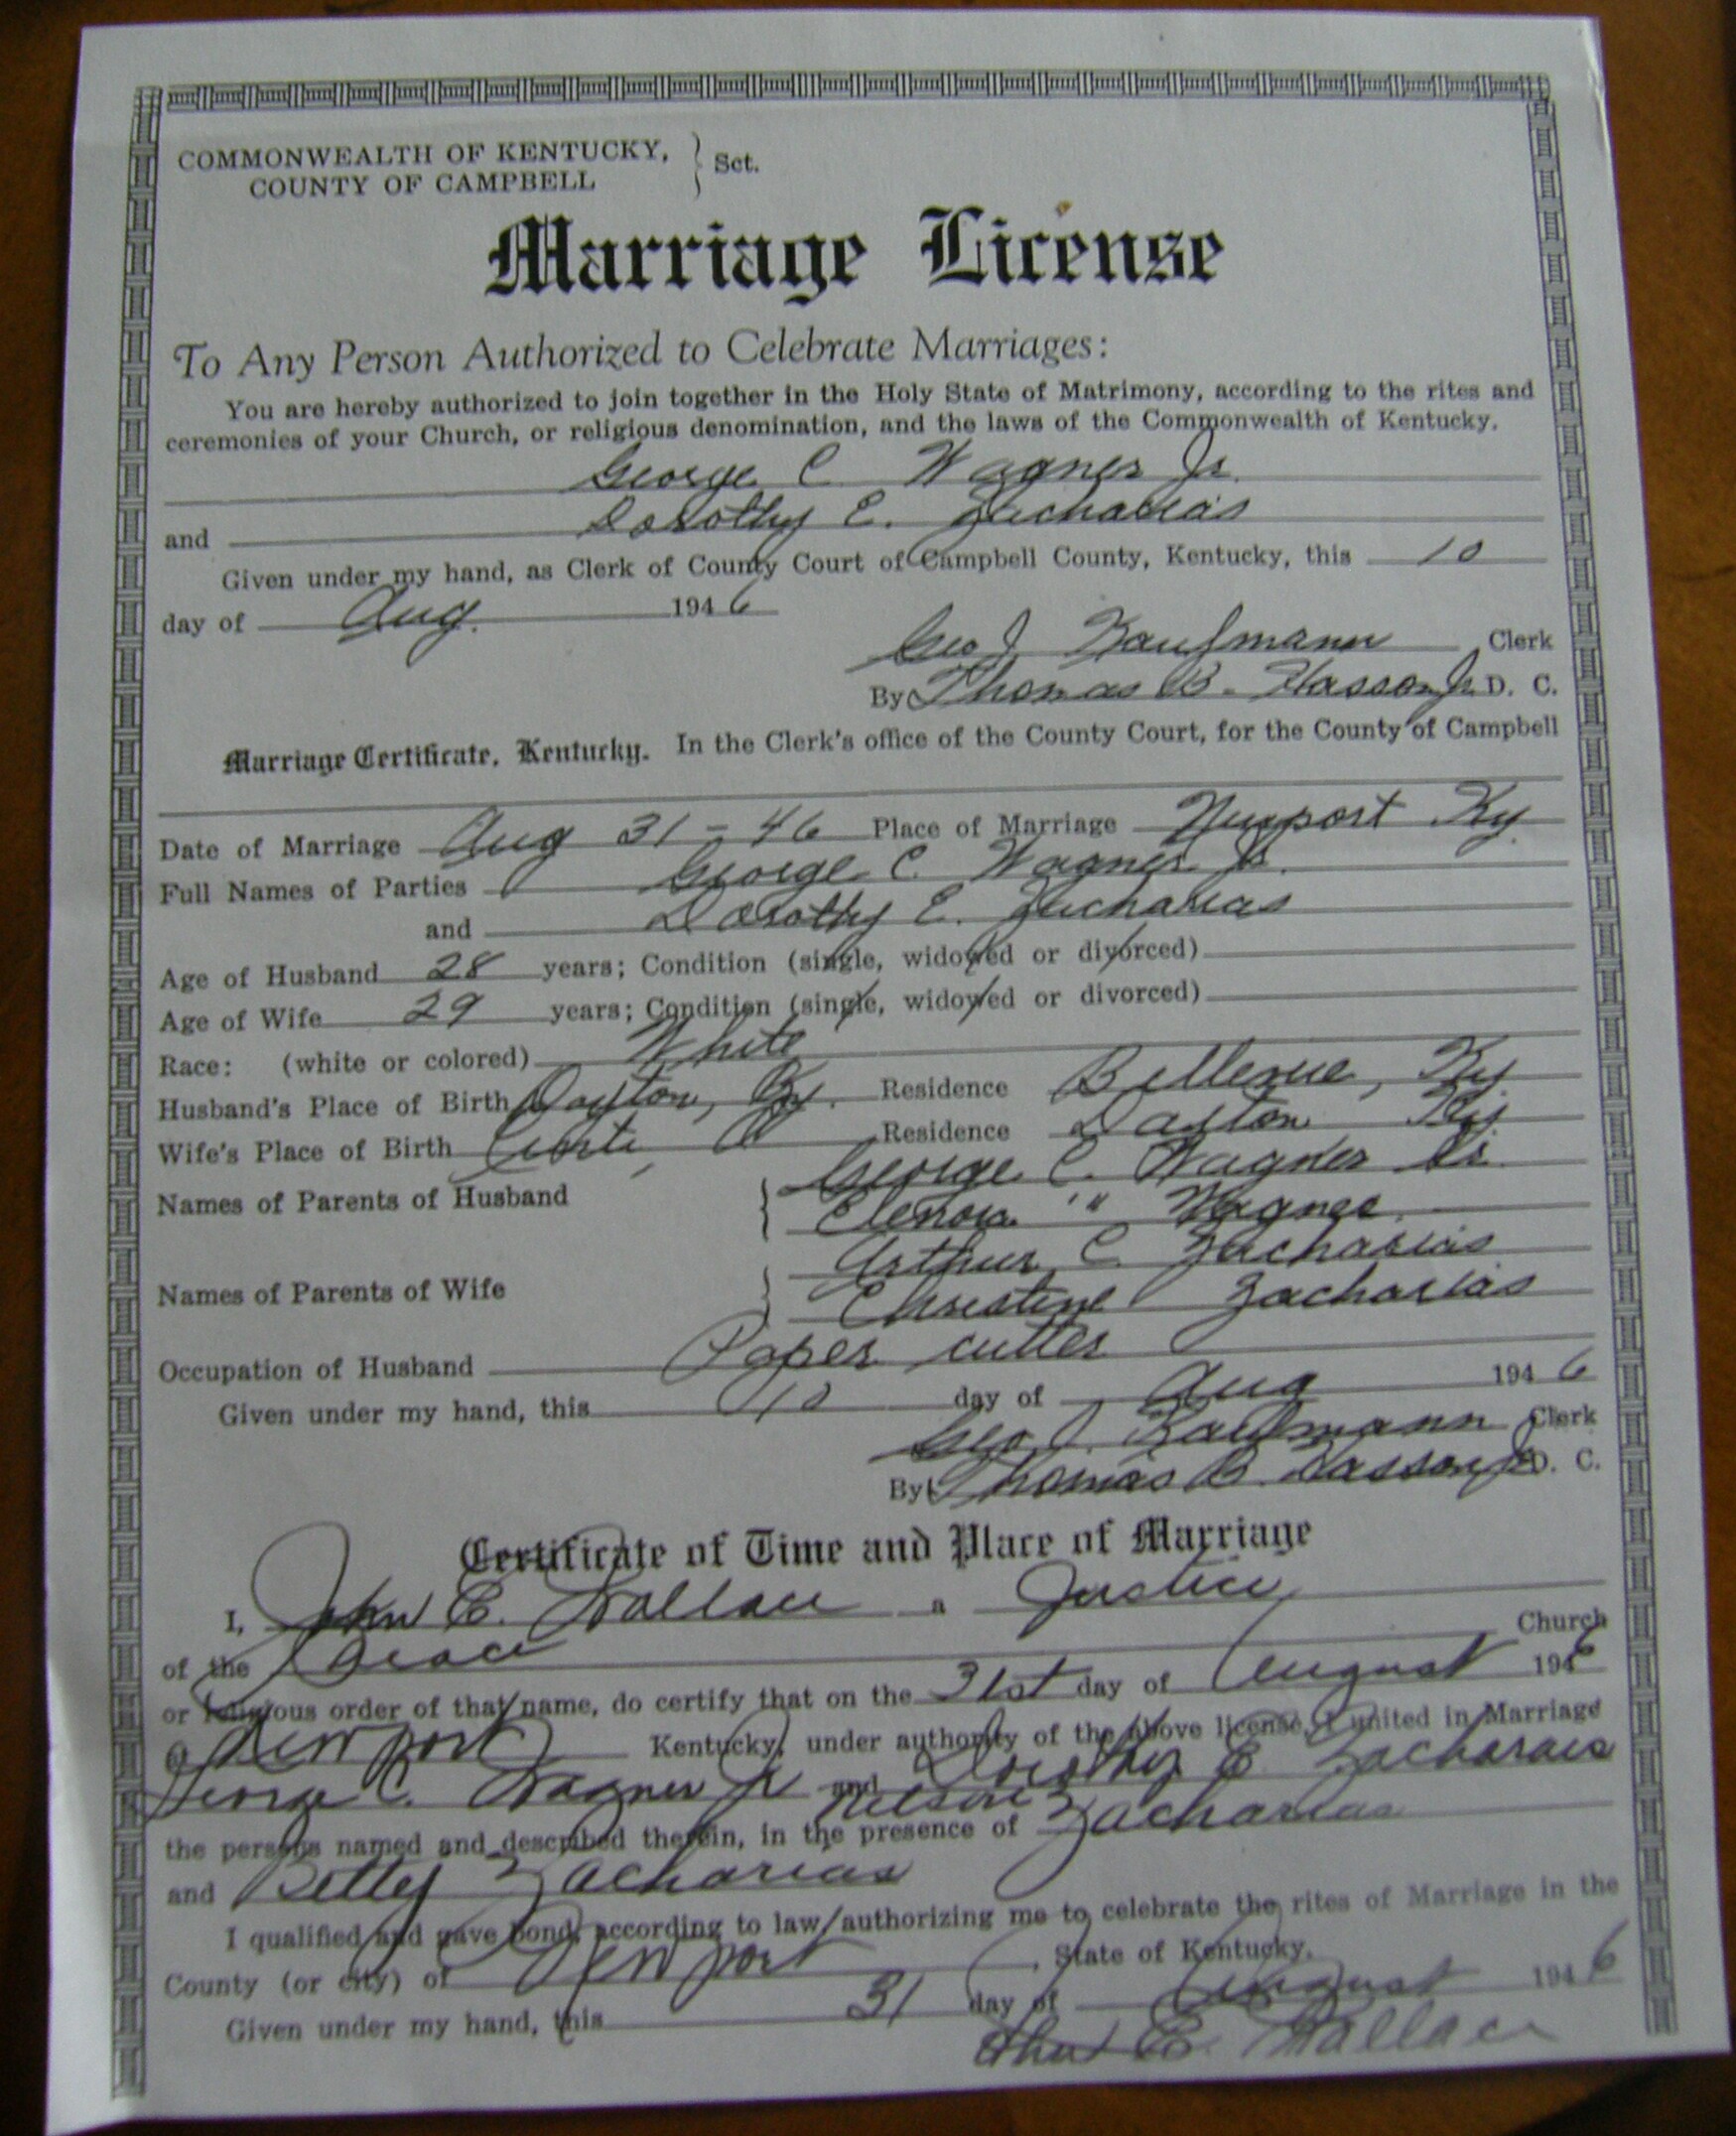 COMMONWEALTH OF KENTUCKY, } Sct.
COUNTY OF CAMPBELL
Marriage License
To Any Person Authorized to Celebrate Marriages:
You are hereby authorized to join together in the Holy State of Matrimony, according to the rites and
ceremonies of your Church, or religious denomination, and the laws of the Commonwealth of Kentucky.
George C. Wagner Jr.
and Dorothy E. Zacharias
Given under my hand, as Clerk of County Court of Campbell County, Kentucky, this 10
day of Aug. 1946
Geo J Kaufmann Clerk
By Thomas B. Hasson Jr. D. C.
Marriage Certificate, Kentucky. In the Clerk's office of the County Court, for the County of Campbell
Date of Marriage Aug 31 - 46 Place of Marriage Newport Ky.
Full Names of Parties George C. Wagner Jr.
and Dorothy E. Zacharias
Age of Husband 28 years; Condition (single, widowed or divorced)
Age of Wife 29 years; Condition (single, widowed or divorced)
Race: (white or colored) White
Husband's Place of Birth Dayton, Ky. Residence Bellevue, Ky
Wife's Place of Birth Cinti, O Residence Dayton Ky.
Names of Parents of Husband { George C. Wagner Sr.
Elenora " Wagner
Arthur C. Zacharias
Names of Parents of Wife { Christine Zacharias
Occupation of Husband Paper cutter
Given under my hand, this 10 day of Aug 1946
Geo J. Kaufmann Clerk
By Thomas B. Hasson Jr. D. C.
Certificate of Time and Place of Marriage
I, John E. Wallace a Justice
of the Peace Church
or religious order of that name, do certify that on the 31st day of August 1946
Newport Kentucky, under authority of the above license, I united in Marriage
George C. Wagner Jr and Dorothy E. Zacharais
the persons named and described therein, in the presence of Nelson Zacharias
and Betty Zacharias
I qualified and gave bond, according to law, authorizing me to celebrate the rites of Marriage in the
County (or city) of Newport, State of Kentucky.
Given under my hand, this 31 day of August 1946
John E. Wallace